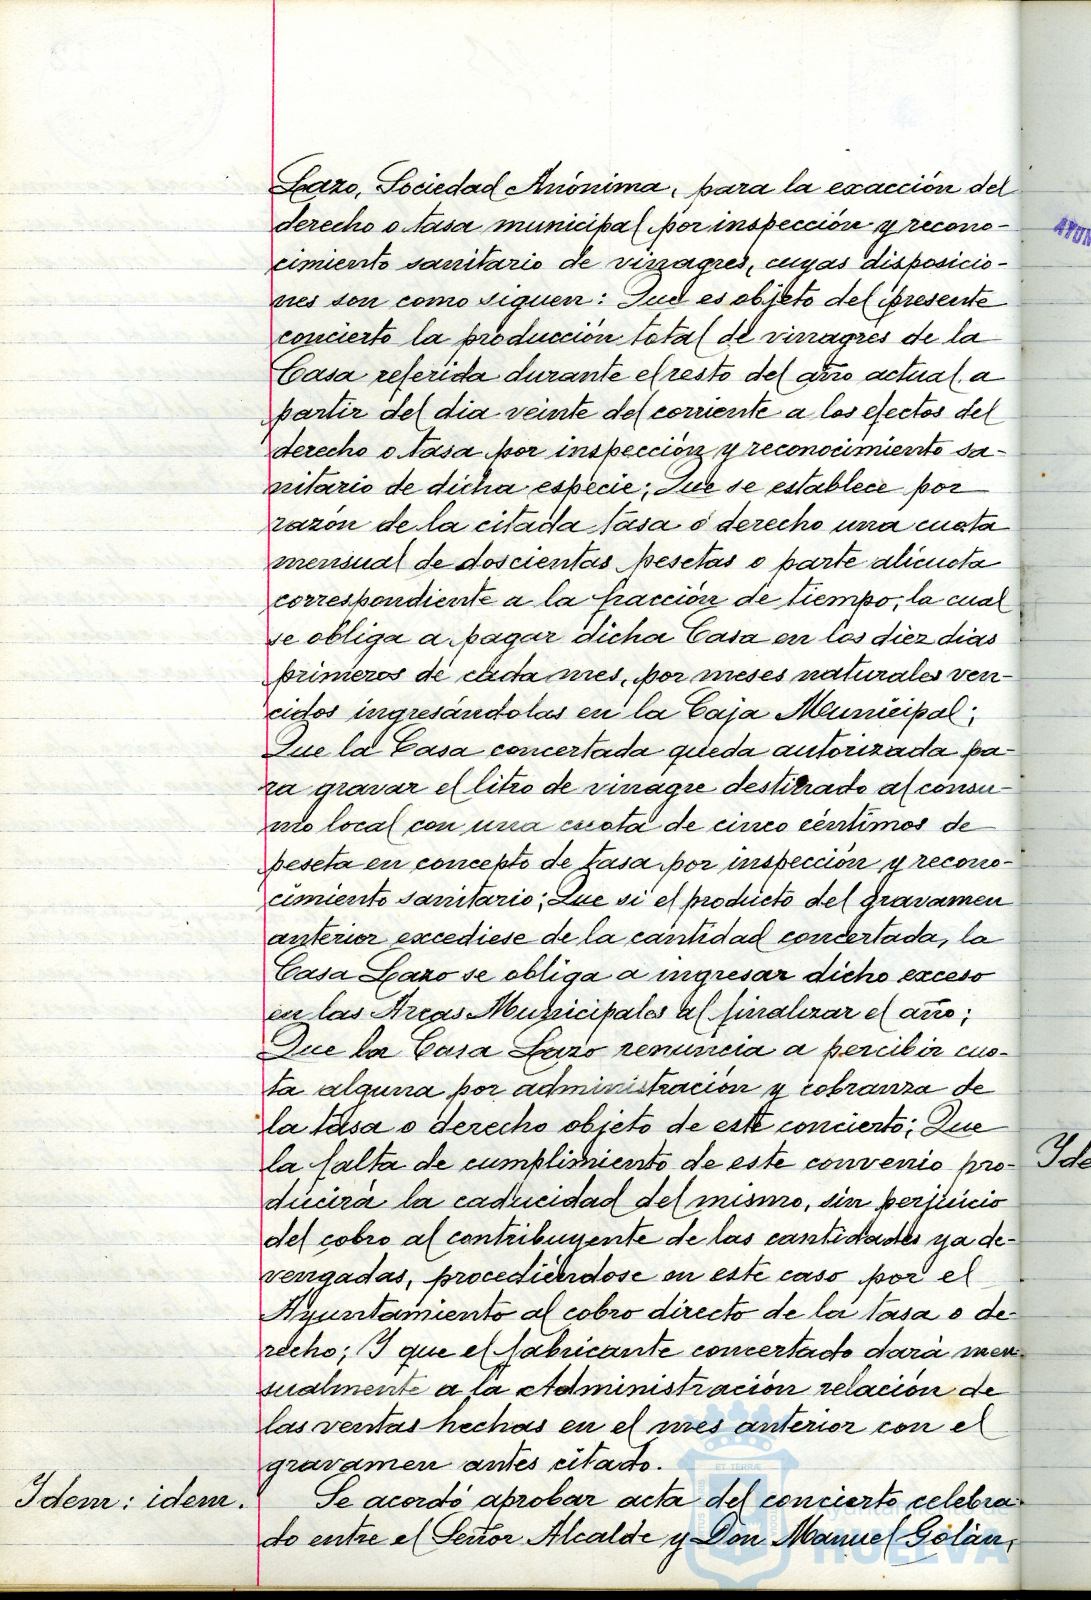 Lazo, Sociedad Anónima, para la exacción del
derecho o tasa municipal por inspección y recono-
cimiento sanitario de vinagres, cuyas disposicio-
nes son como siguen: Que es objeto del presente
concierto la producción total de vinagres de la
Casa referida durante el resto del año actual a
partir del dia veinte del corriente a los efectos del
derecho o tasa por inspección y reconocimiento sa-
nitario de dicha especie; Que se establece por
razón de la citada tasa ó derecho una cuota
mensual de doscientas pesetas o parte alicuota
correspondiente a la fracción de tiempo, la cual
se obliga a pagar dicha Casa en los diez dias
primeros de cada mes, por meses naturales ven-
cidos ingresándolas en la Caja Municipal;
Que la Casa concertada queda autorizada pa-
ra gravar el litro de vinagre destinado al consu-
mo local con una cuota de cinco céntimos de
peseta en concepto de tasa por inspección y recono-
cimiento sanitario; Que si el producto del gravamen
anterior excediese de la cantidad concertada, la
Casa Lazo se obliga a ingresar dicho exceso
en las Arcas Municipales al finalizar el año;
Que la Casa Lazo renuncia a percibir cuo-
ta alguna por administración y cobranza de
la tasa o derecho objeto de este concierto; Que
la falta de cumplimiento de este convenio pro-
ducirá la caducidad del mismo, sin perjuicio
del cobro al contribuyente de las cantidades ya de-
vengadas, procediéndose en este caso por el
Ayuntamiento al cobro directo de la tasa o de-
recho; Y que el fabricante concertado dará men-
sualmente a la Administración relación de
las ventas hechas en el mes anterior con el
gravamen antes citado.
Idem: idem. Se acordó aprobar acta del concierto celebra-
do entre el Señor Alcalde y Don Manuel Golán,
AYUN
Ide
Ayuntamiento de
HUELVA